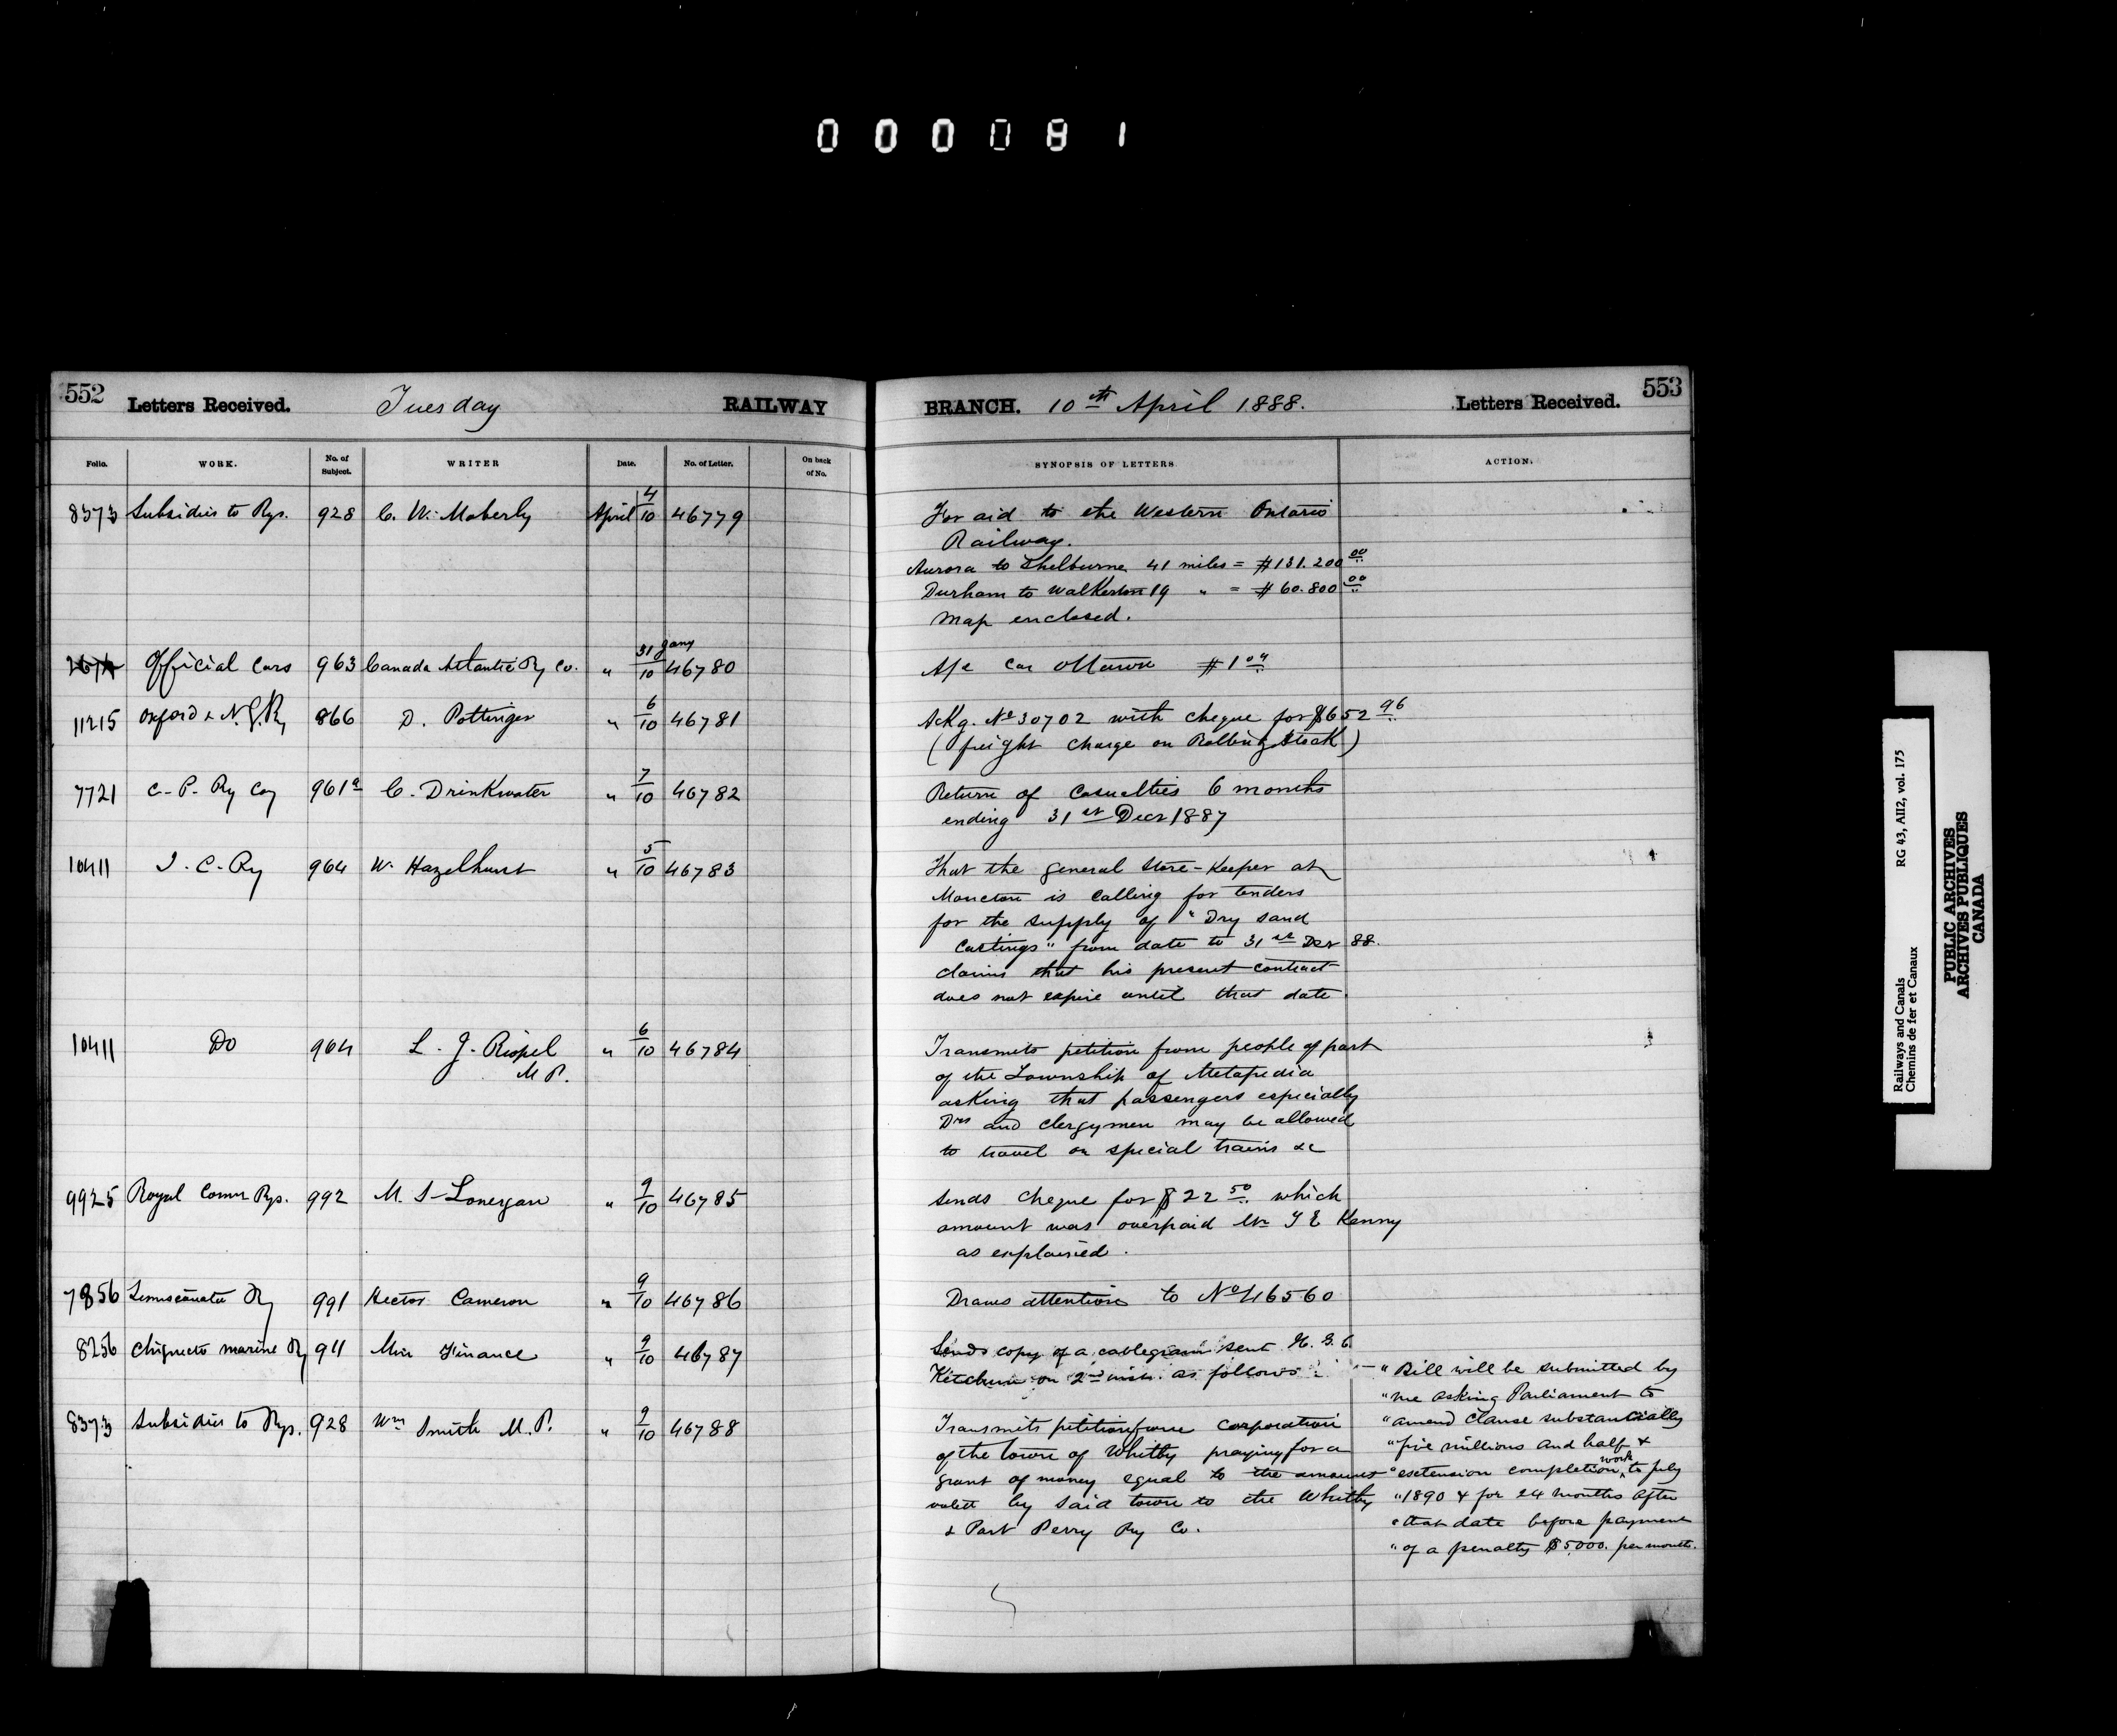 0 0 0 0 8 1
552 Letters Received. Tuesday RAILWAY
BRANCH. 10th April 1888. Letters Received. 553
Folio. WORK. No. of Subject. WRITER Date. No. of Letter. On back of No. SYNOPSIS OF LETTERS. ACTION.
8373 Subsidies to Rys. 928 C. W. Moberly April 4/10 46779
For aid to the Western Ontario
Railway.
Aurora to Shelburne 41 miles = $131.200 00
Durham to Walkerton 19 " = $60.800 00
Map enclosed.
Official Cars 963 Canada Atlantic Ry Co. " 31 Jany/10 46780
A/c Car Ottawa $1 04
11215 Oxford & N. G. Ry 866 D. Pottinger " 6/10 46781
Ackg. No 30702 with cheque for $652 96
(freight charge on Rolling Stock)
7721 C. P. Ry Coy 961a C. Drinkwater " 7/10 46782
Return of Casualties 6 months
ending 31st Decr 1887
10411 I. C. Ry 964 W. Hazelhurst " 5/10 46783
That the general Store-Keeper at
Moncton is calling for tenders
for the supply of "Dry sand
Castings" from date to 31st Decr 88.
claims that his present contract
does not expire until that date.
10411 Do 964 L. J. Riopel " 6/10 46784
M P.
Transmits petition from people of part
of the Township of Metapedia
asking that passengers especially
Drs and clergymen may be allowed
to travel on special trains &c
9925 Royal Comn Rys. 992 M. S. Lonergan " 9/10 46785
Sends cheque for $22 50 which
amount was overpaid Mr T E Kenny
as explained.
7856 Temiscouata Ry 991 Hector Cameron " 9/10 46786
Draws attention to No 46560
8256 Chignecto marine Ry 911 Min Finance " 9/10 46787
Sends copy of a cablegram sent H. G. C.
Ketchum on 2nd inst. as follows :—
" Bill will be submitted by
" me asking Parliament to
" amend clause substantially
" five millions and half &
" extension completion work to July
" 1890 & for 24 months after
" that date before payment
" of a penalty $5,000. per month.
8373 Subsidies to Rys. 928 Wm Smith M. P. " 9/10 46788
Transmits petition from Corporation
of the town of Whitby praying for a
grant of money equal to the amount
by said town to the Whitby
& Port Perry Ry Co.
Railways and Canals RG 43, AII2, vol. 175
Chemins de fer et Canaux
PUBLIC ARCHIVES
ARCHIVES PUBLIQUES
CANADA